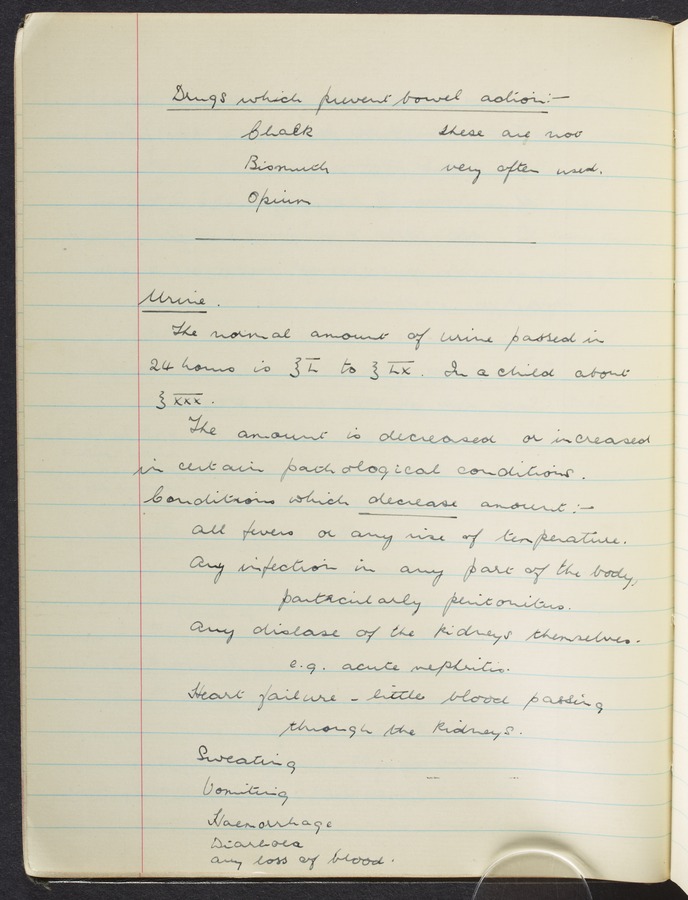 Drugs which prevent bowel action:-
Chalk these are not
Bismuth very often used.
Opium
Urine.
The normal amount of urine passed in
24 hours is ℥ L to ℥ LX. In a child about
℥ XXX.
The amount is decreased or increased
in certain pathological conditions.
Conditions which decrease amount:-
All fevers or any rise of temperature.
Any infection in any part of the body,
particularly peritonitis.
Any disease of the kidneys themselves.
e.g. acute nephritis.
Heart failure - little blood passing
through the kidneys.
Sweating
Vomiting
Haemorrhage
Diarhoea
any loss of blood.